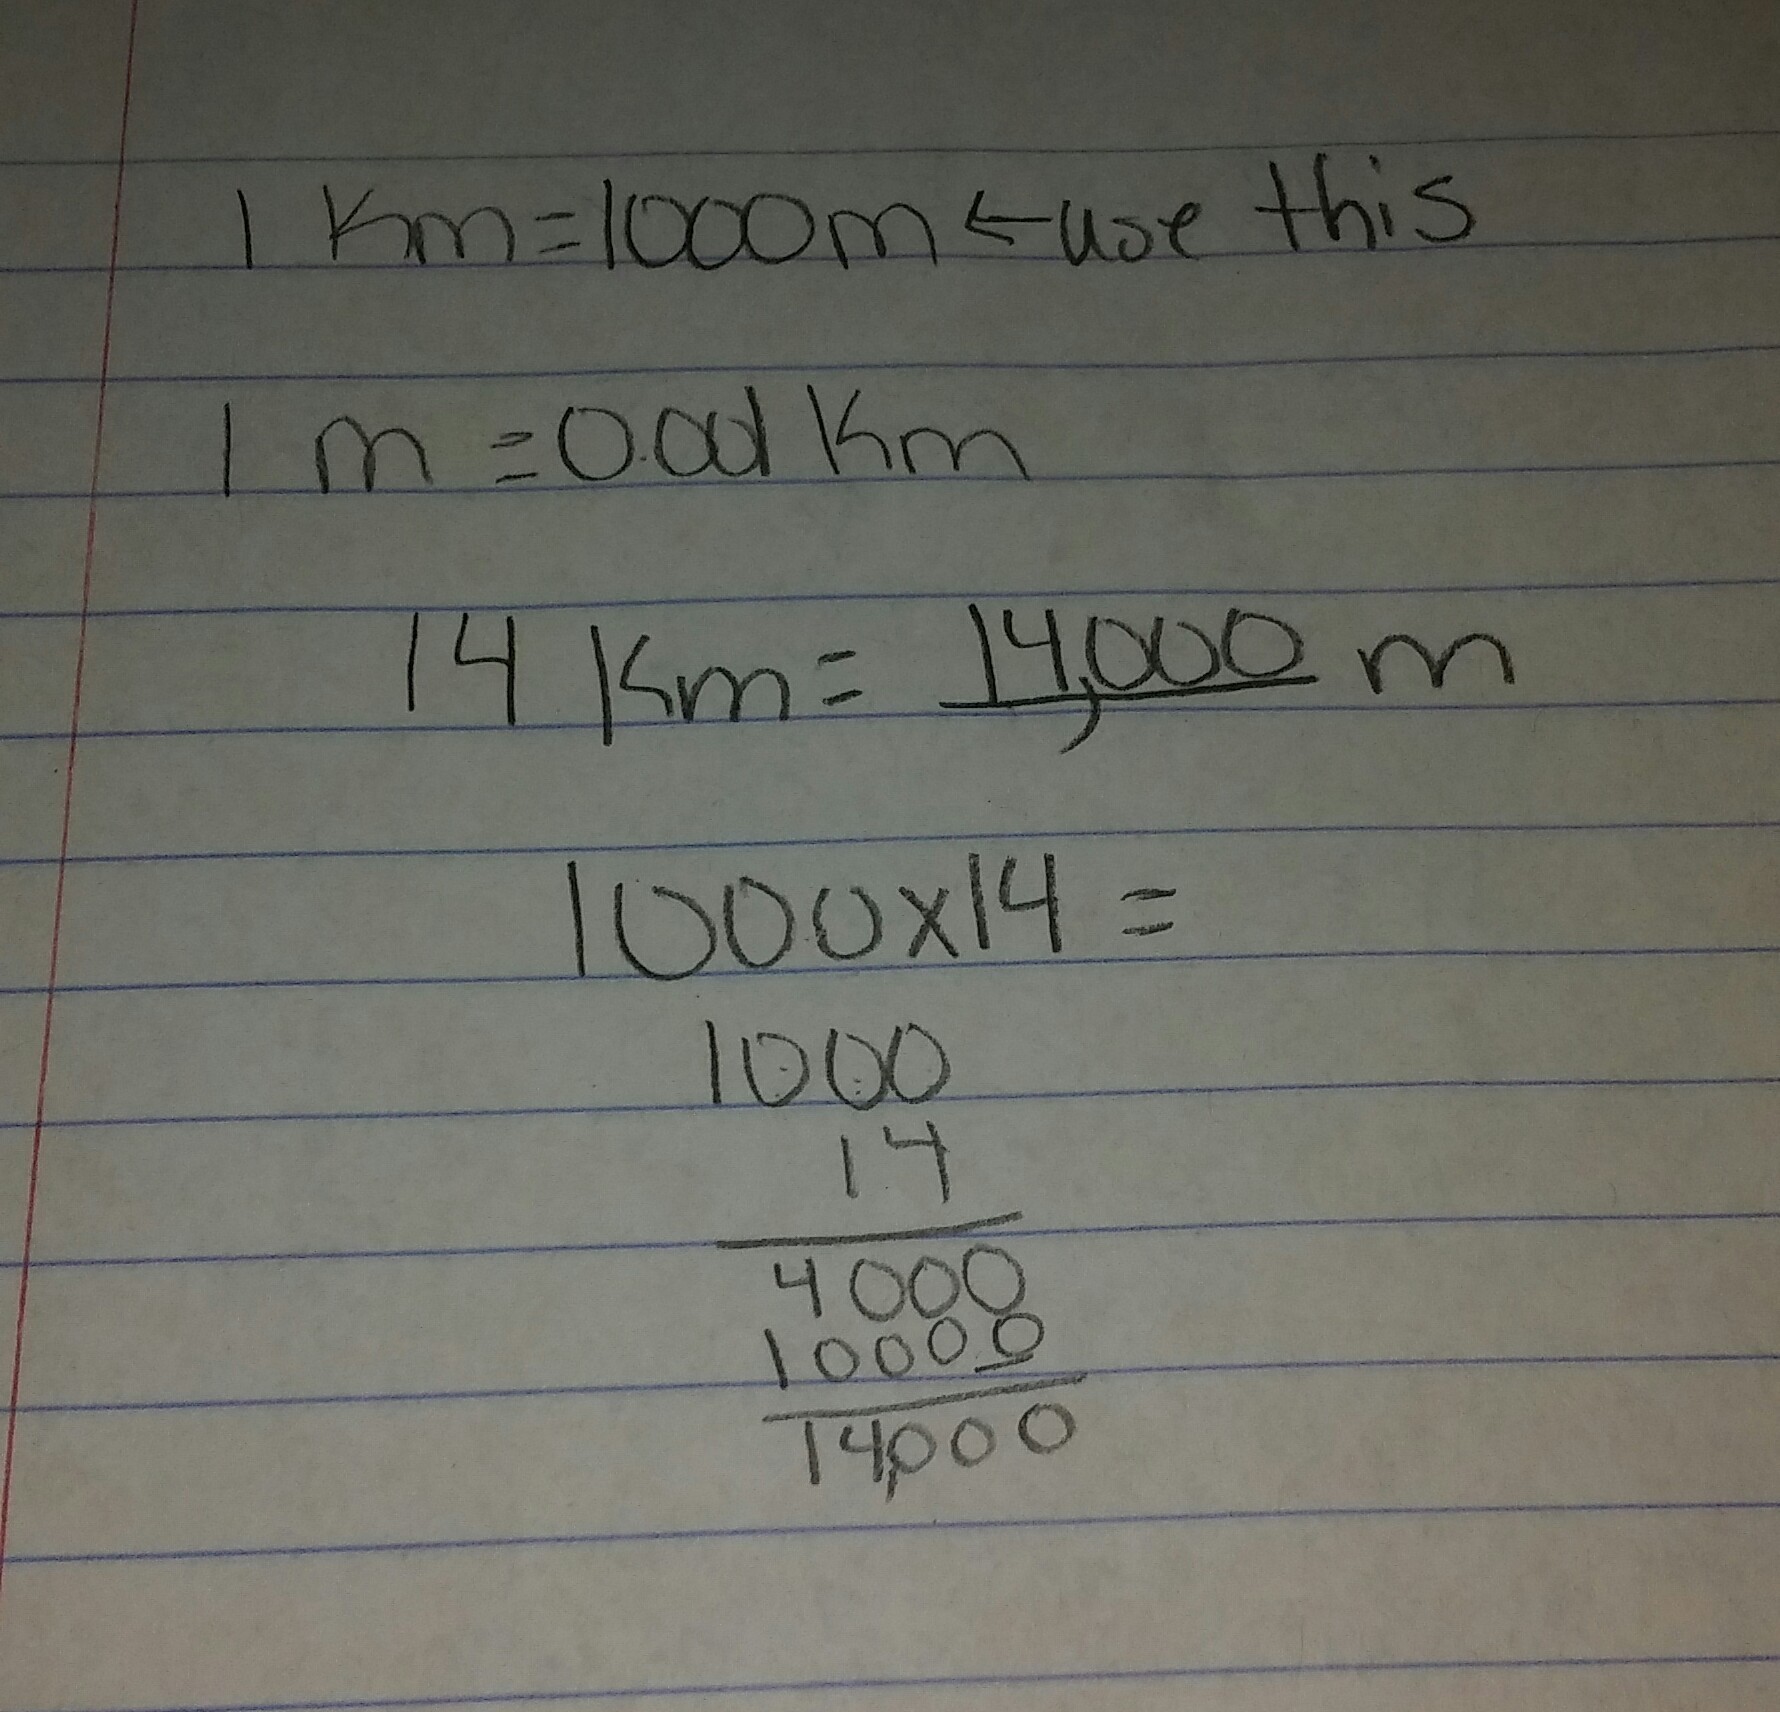 1 Km=1000m ← use this
1 m =0.001 Km
14 Km= 14,000 m
1000x14 =
1000
14
4000
10000
14,000